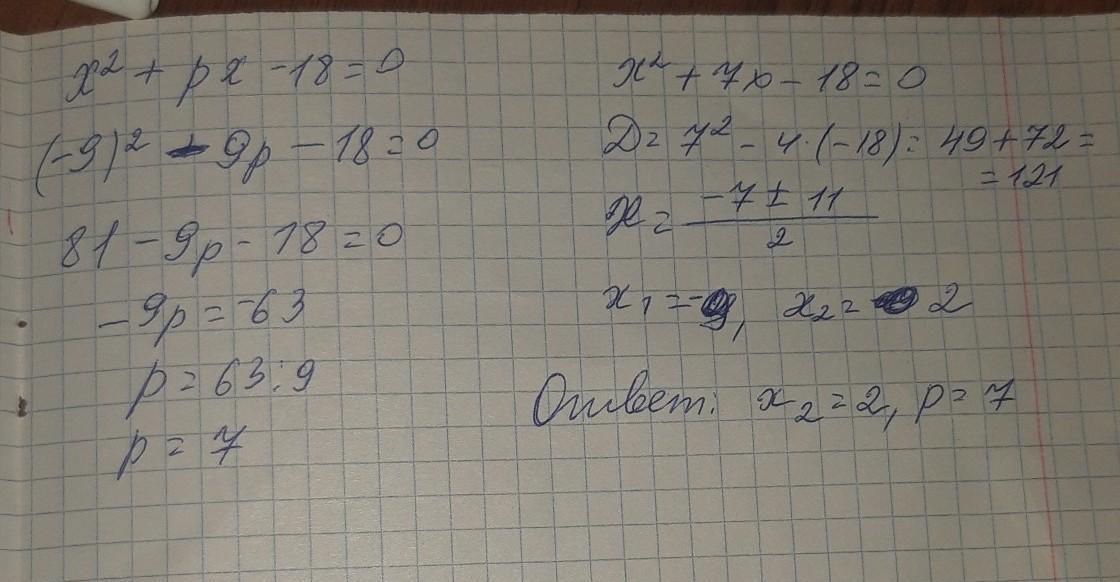 x² + px - 18 = 0
(-9)² - 9p - 18 = 0
81 - 9p - 18 = 0
-9p = -63
p = 63 : 9
p = 7
x² + 7x - 18 = 0
D = 7² - 4·(-18) = 49 + 72 =
= 121
x = (-7 ± 11) / 2
x₁ = -9, x₂ = 2
Ответ: x₂ = 2, p = 7